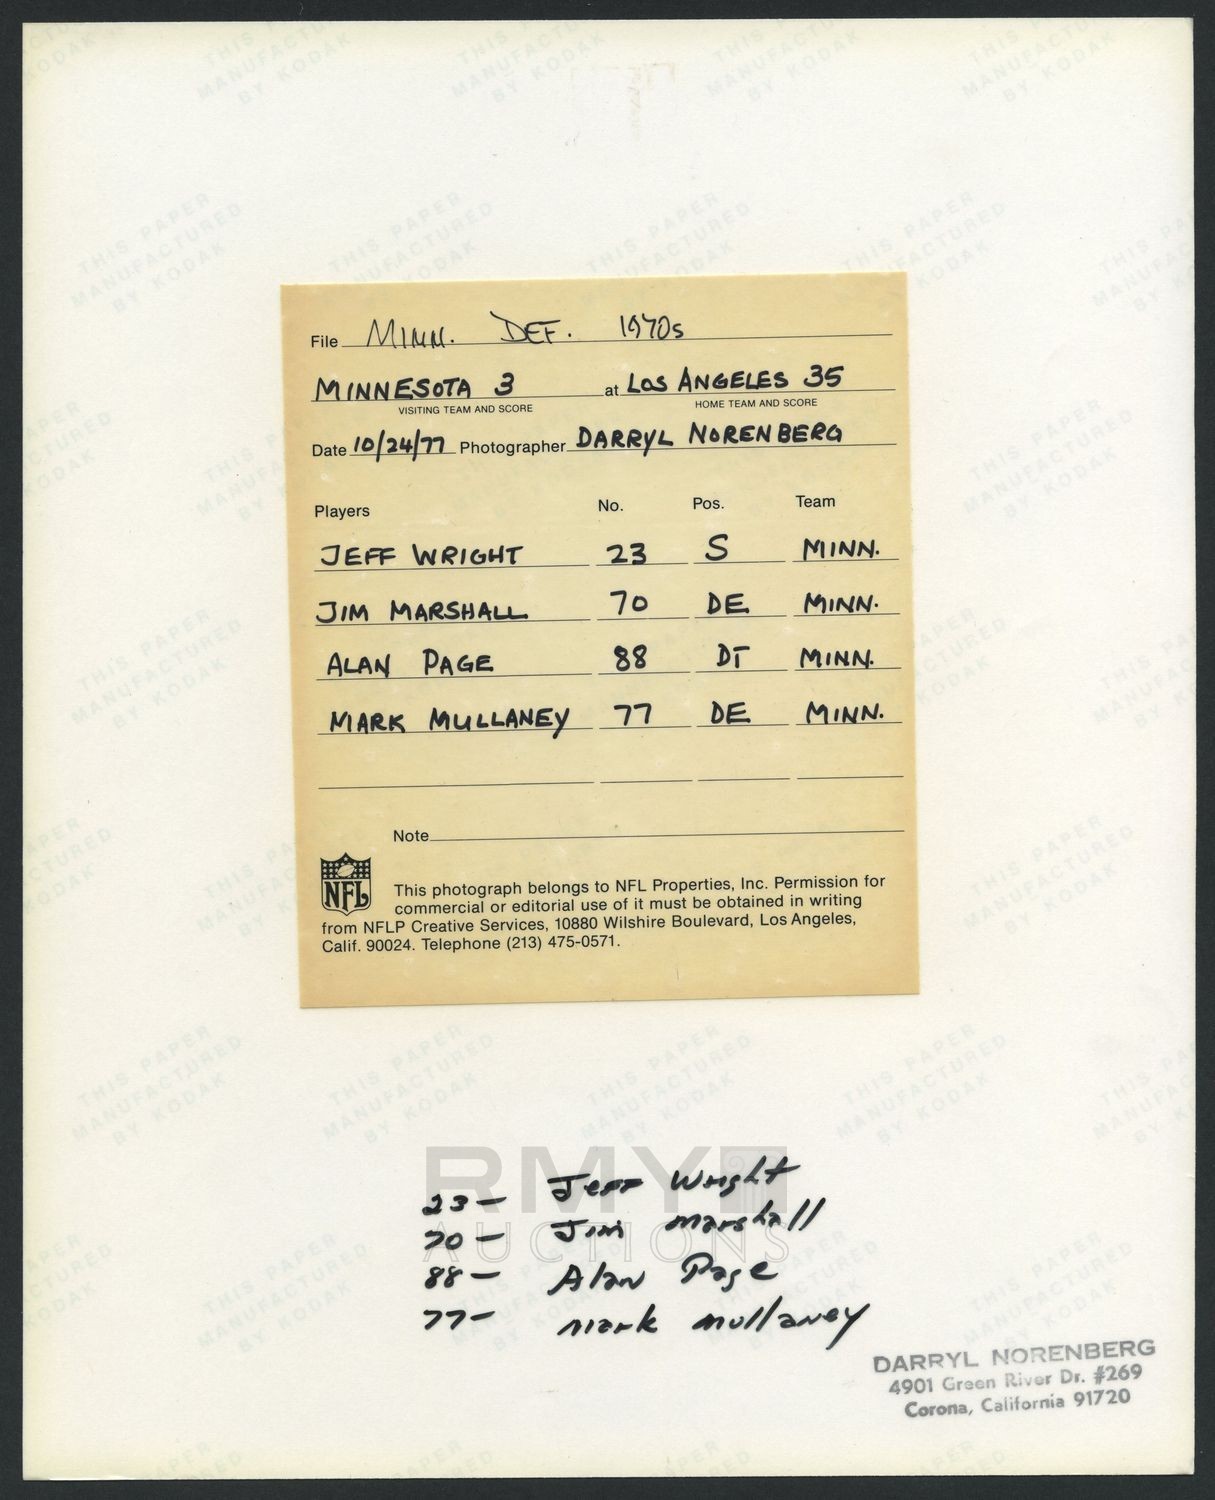 File MINN. DEF. 1970s
MINNESOTA 3 at LOS ANGELES 35
VISITING TEAM AND SCORE HOME TEAM AND SCORE
Date 10/24/77 Photographer DARRYL NORENBERG
Players No. Pos. Team
JEFF WRIGHT 23 S MINN.
JIM MARSHALL 70 DE MINN.
ALAN PAGE 88 DT MINN.
MARK MULLANEY 77 DE MINN.
Note
NFL
This photograph belongs to NFL Properties, Inc. Permission for
commercial or editorial use of it must be obtained in writing
from NFLP Creative Services, 10880 Wilshire Boulevard, Los Angeles,
Calif. 90024. Telephone (213) 475-0571.
RMY
AUCTIONS
23- Jeff Wright
70- Jim Marshall
88- Alan Page
77- Mark Mullaney
DARRYL NORENBERG
4901 Green River Dr. #269
Corona, California 91720
THIS PAPER
MANUFACTURED
BY KODAK